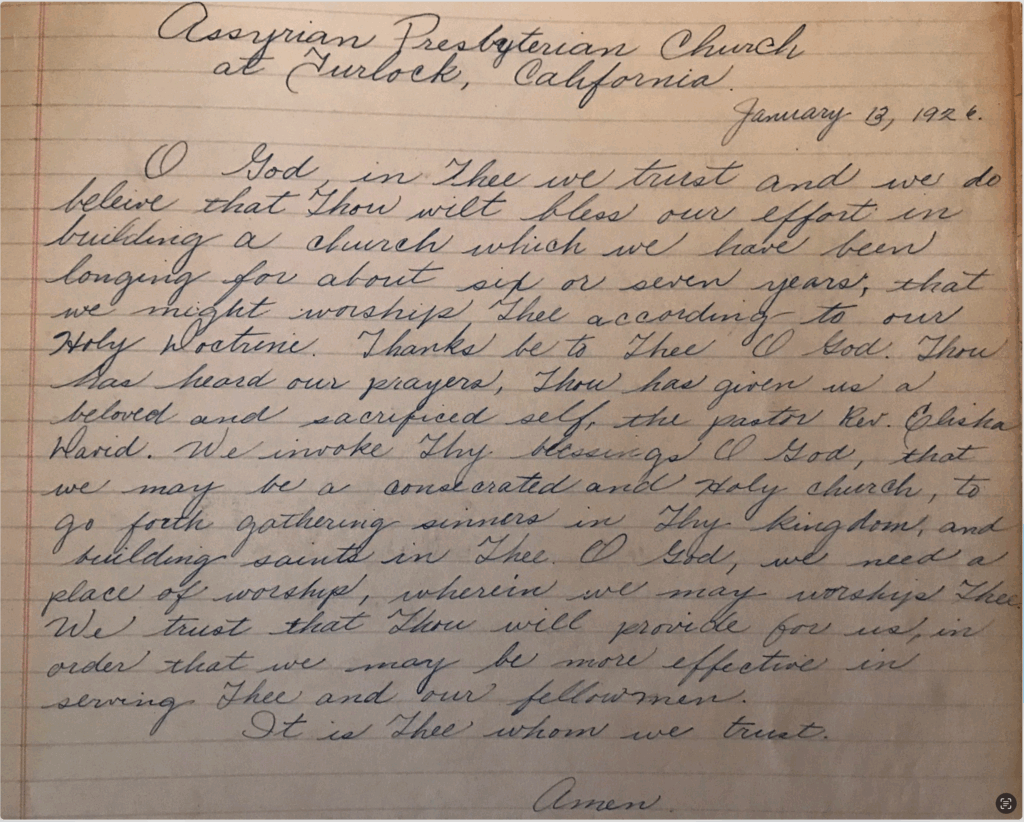 Assyrian Presbyterian Church
at Turlock, California.
January 13, 1926.
O God, in Thee we trust and we do
beleive that Thou wilt bless our effort in
building a church which we have been
longing for about six or seven years, that
we might worship Thee according to our
Holy Doctrine. Thanks be to Thee O God. Thou
has heard our prayers, Thou has given us a
beloved and sacrificed self, the pastor Rev. Elisha
David. We invoke Thy blessings O God, that
we may be a consecrated and Holy church, to
go forth gathering sinners in Thy kingdom, and
building saints in Thee. O God, we need a
place of worship, wherein we may worship Thee.
We trust that Thou will provide for us, in
order that we may be more effective in
serving Thee and our fellowmen.
It is Thee whom we trust.
Amen.